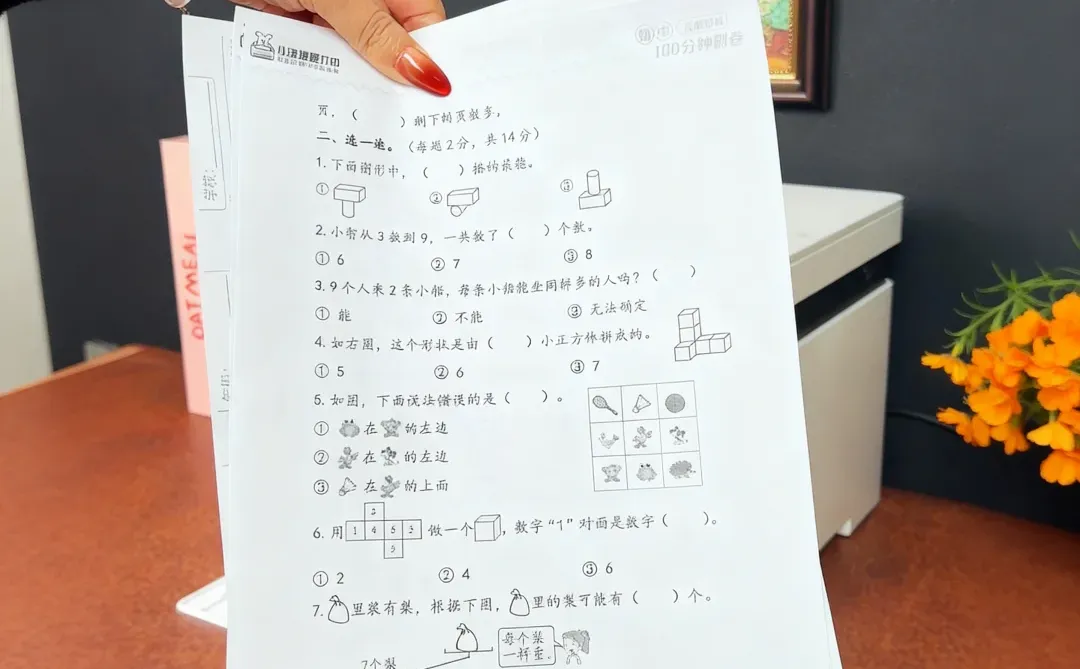 100分钟刷卷
学校:
OATMEAL
页,( )剩下的页数多。
二、选一选。(每题2分,共14分)
1.下面图形中,( )搭的最稳。
① ② ③
2.小明从3数到9,一共数了( )个数。
① 6 ② 7 ③ 8
3.9个人乘2条小船,每条小船能坐同样多的人吗?( )
① 能 ② 不能 ③ 无法确定
4.如右图,这个形状是由( )小正方体拼成的。
① 5 ② 6 ③ 7
5.如图,下面说法错误的是( )。
① 在 的左边
② 在 的左边
③ 在 的上面
6.用 做一个 ,数字“1”对面是数字( )。
1 4
① 2 ② 4 ③ 6
7. 里装有梨,根据下图, 里的梨可能有( )个。
每个梨
一样重。
7个梨